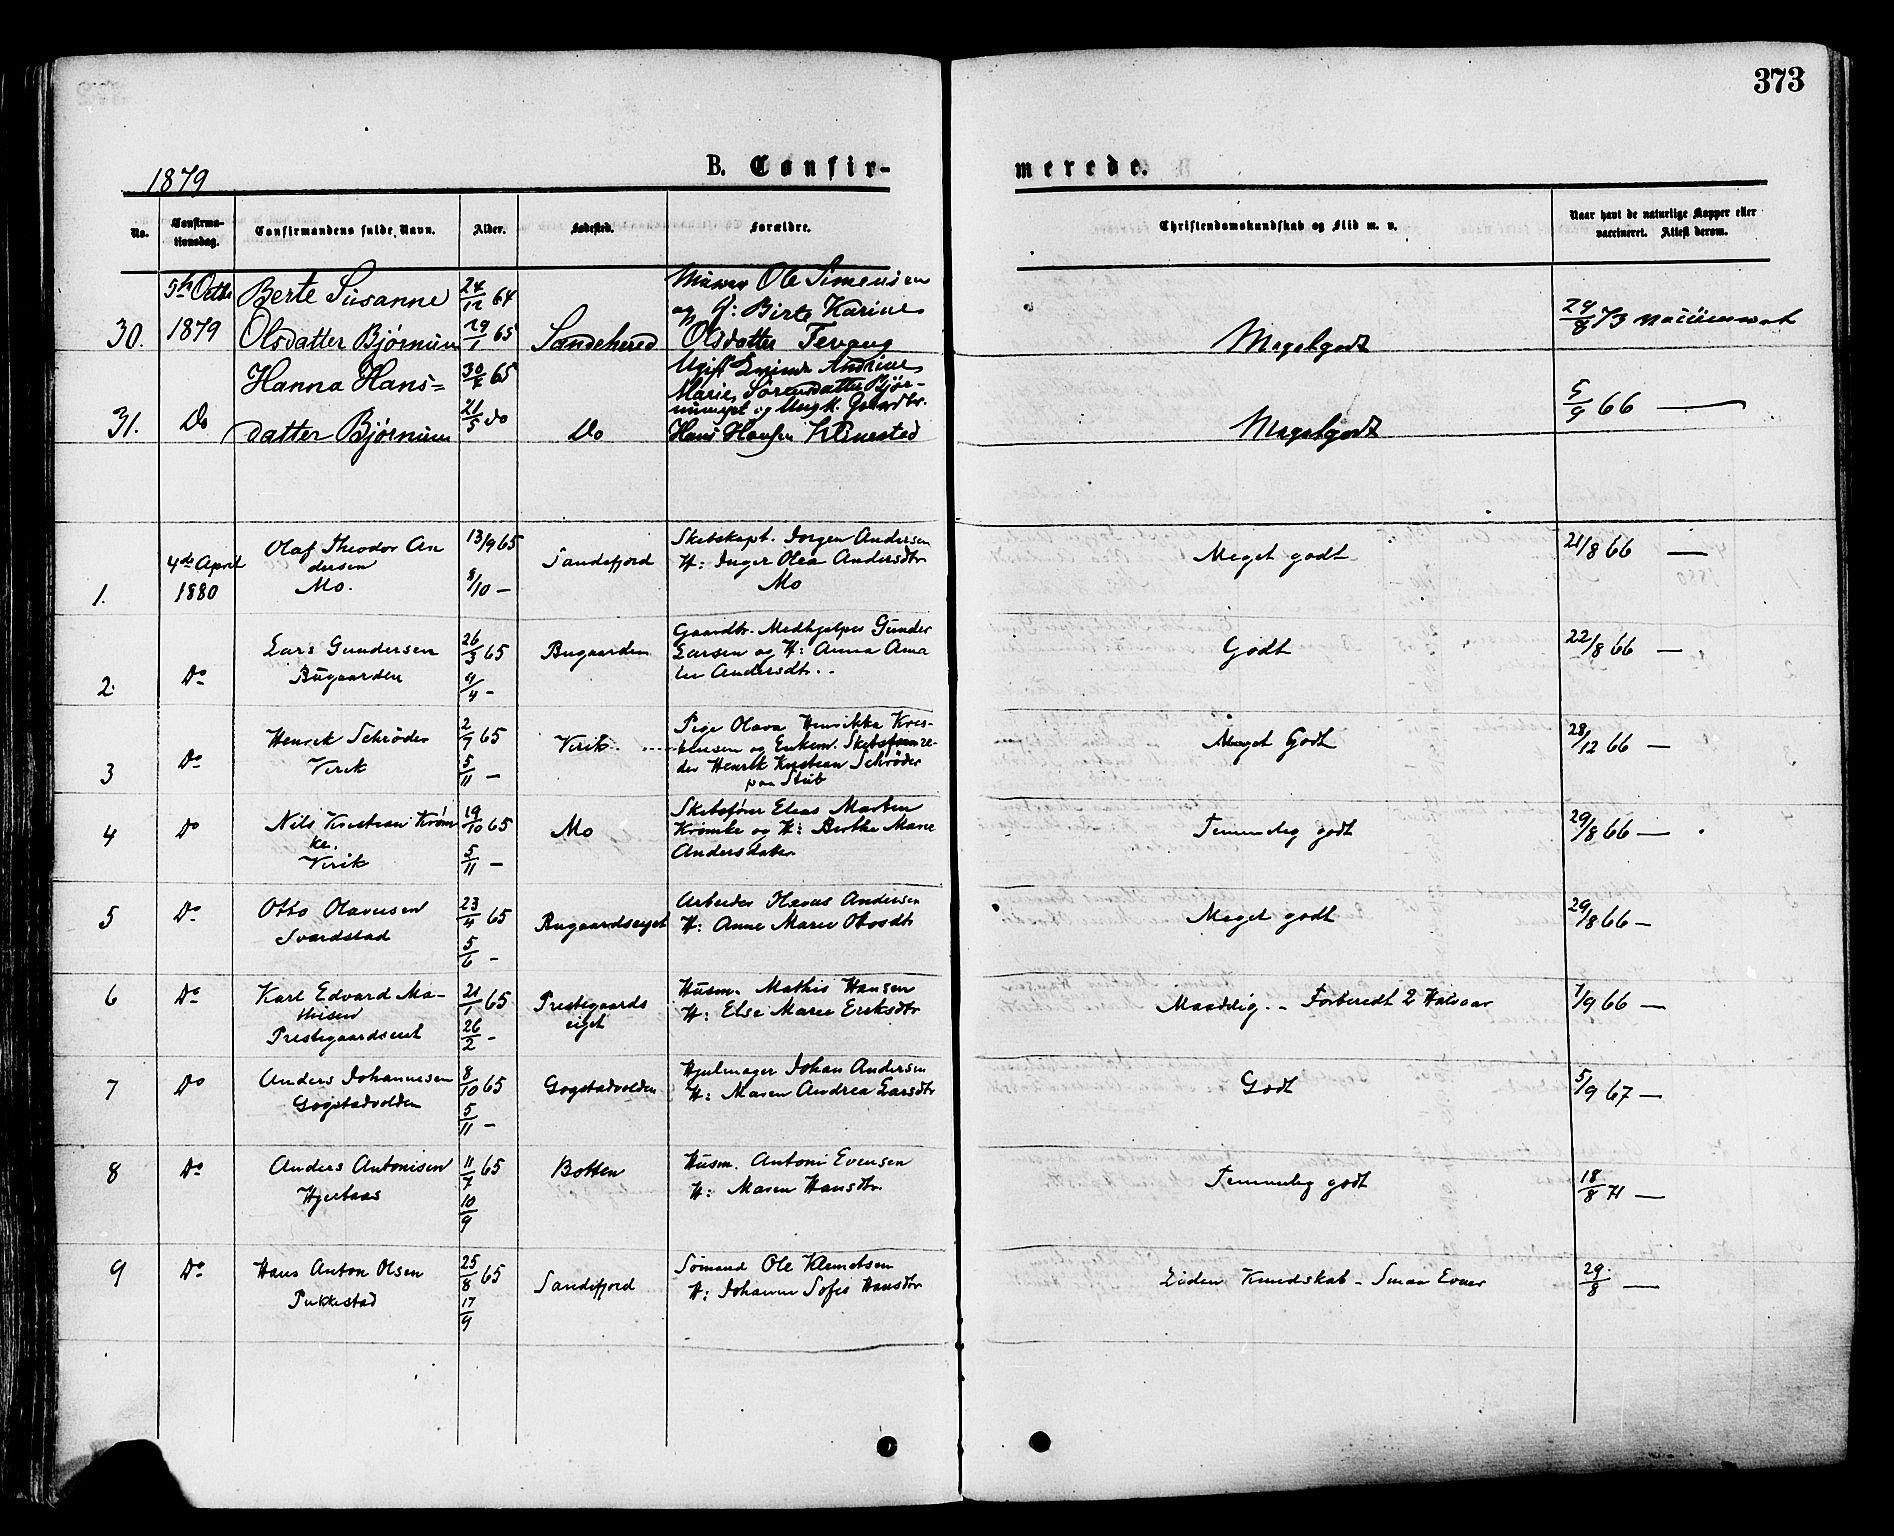 373
1879
B. Confir-
merede.
No.
Confirma-
tionsdag.
Confirmandens fulde Navn.
Alder.
Fødested.
Forældre.
Christendomskundskab og Flid m. v.
Naar havt de naturlige Kopper eller
vaccineret. Attest derom.
30.
5te Octbr
1879
Berte Susanne
Olsdatter Bjørnum
24/12 64
29/1 65
Sandehered
Murer Ole Simensen
og H: Birte Karine
Olsdatter
Megetgodt
24/8 73
31.
Do
Hanna Hans=
datter Bjørnum
30/7 65
21/5 do
Do
Ugift Kvinde Andrine
Marie Sørensdatter Bjør-
og Ungk. Gaardbr.
Hans Hansen Klinestad
Megetgodt
5/9 66 —
1.
4de April
1880
Olaf Theodor An
dersen
Mo.
13/9 65
8/10 —
Sandefjord
Skibskapt. Jørgen Andersen
H: Inger Olea Andersdtr
Mo
Meget godt
21/8 66 —
2.
Do
Lars Gundersen
Bugaarden
26/3 65
4/4 —
Bugaarden
Gaardbr. Medhjelper Gunder
Larsen og H: Anna Ama
lie Andersdtr.
Godt
22/8 66 —
3
Do
Henrik Schrøder
Virik
2/7 65
5/11 —
Virik
Pige Olava Henrikka Kris-
tensen og Enkem. Skibs
der Henrik Kristian Schrøder
paa Stub
Meget Godt
28/12 66 —
4
Do
Nils Kristian Krøm
ke.
Virik
19/10 65
5/11 —
Mo
Skibsfører Elias Morten
Krømke og H: Berthe Marie
Andersdater
Temmelig godt
29/8 66 —
5
Do
Otto Olavesen
Svardstad
23/4 65
5/6 —
Bugaardseiet
Arbeider Olavus Andersen
H: Anne Marie Olosdtr
Meget godt
29/8 66 —
6
Do
Karl Edvard Ma-
thisen
Prestegaardseiet
21/1 65
26/2 —
Prestegaards
eiet
Husm. Mathis Hansen
H: Else Marie Eriksdtr
Maadelig. - Forberedt 2 Halvaar
7/9 66 —
7
Do
Anders Johannesen
Gogstadvolden
8/10 65
5/11 —
Gogstadvolden
Hjulmager Johan Andersen
H: Maren Andrea Larsdtr
Godt
5/9 67 —
8
Do
Anders Antonisen
Hjertaas
11/7 65
10/9
Botten
Husm. Antoni Evensen
H: Maren Hansdtr.
Temmelig godt
18/8 71 —
9
Do
Hans Anton Olsen
Pukkestad
25/8 65
17/9
Sandefjord
Sømand Ole Klemetsen
H: Johanne Sofie Hansdtr
Liden Kundskab - Smaa Evner
29/8 —